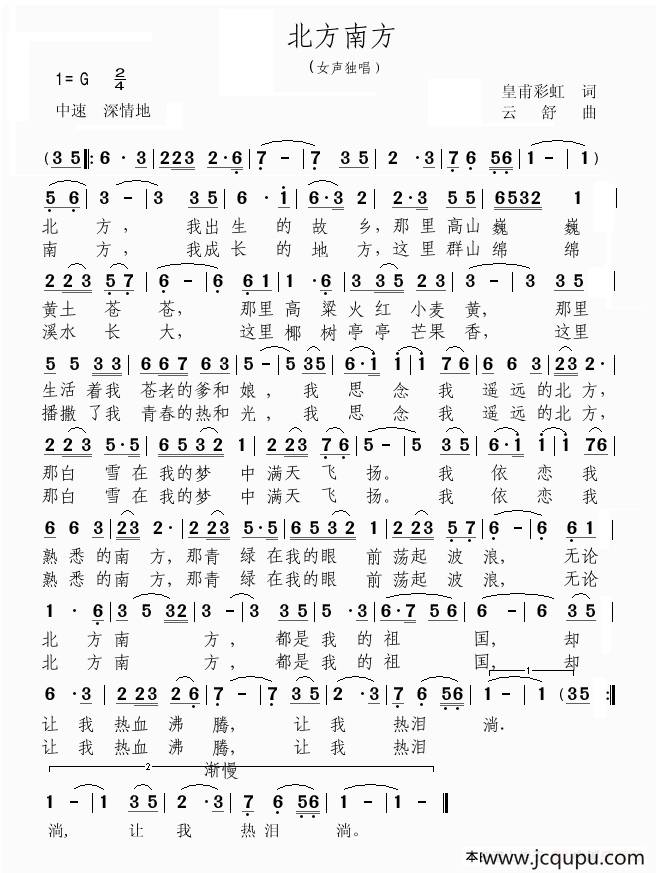 北方南方
(女声独唱)
1=G 2/4
皇甫彩虹 词
中速 深情地
云舒 曲
(3 5 ‖: 6 · 3 | 2 2 3 2 · 6 | 7 - | 7 3 5 | 2 · 3 | 7 6 5 6 | 1 - | 1 )
5 6 | 3 - | 3 3 5 | 6 · i | 6 · 3 2 | 2 · 3 5 5 | 6 5 3 2 1 |
北方, 我出生的故乡,那里高山巍巍
南方, 我成长的地方,这里群山绵绵
2 2 3 5 7 | 6 - | 6 6 1 | 1 · 6 | 3 3 5 2 3 | 3 - | 3 3 5 |
黄土苍苍, 那里高粱火红小麦黄, 那里
溪水长大, 这里椰树亭亭芒果香, 这里
5 5 3 3 | 6 6 7 6 3 | 5 - | 5 3 5 | 6 · i | i i 7 6 | 6 6 3 | 2 3 2 · |
生活着我苍老的爹和娘, 我思念我遥远的北方,
播撒了我青春的热和光, 我思念我遥远的北方,
2 2 3 5 · 5 | 6 5 3 2 1 | 2 2 3 7 6 | 5 - | 5 3 5 | 6 · i | i 7 6 |
那白雪在我的梦中满天飞扬。我依恋我
那白雪在我的梦中满天飞扬。我依恋我
6 6 3 | 2 3 2 · | 2 2 3 5 · 5 | 6 5 3 2 1 | 2 2 3 5 7 | 6 - | 6 6 1 |
熟悉的南方,那青绿在我的眼前荡起波浪, 无论
熟悉的南方,那青绿在我的眼前荡起波浪, 无论
1 · 6 | 3 5 3 2 | 3 - | 3 3 5 | 5 · 3 | 6 · 7 5 6 | 6 - | 6 3 5 |
北方南方, 都是我的祖国, 却
北方南方, 都是我的祖国, 却
1
6 · 3 | 2 2 3 2 6 | 7 - | 7 3 5 | 2 · 3 | 7 6 5 6 | 1 - | 1 (3 5 :‖
让我热血沸腾, 让我热泪淌.
让我热血沸腾, 让我热泪
2
渐慢
1 - | 1 3 5 | 2 · 3 | 7 6 5 6 | 1 - | 1 - ‖
淌, 让我热泪淌。
www.jcqupu.com